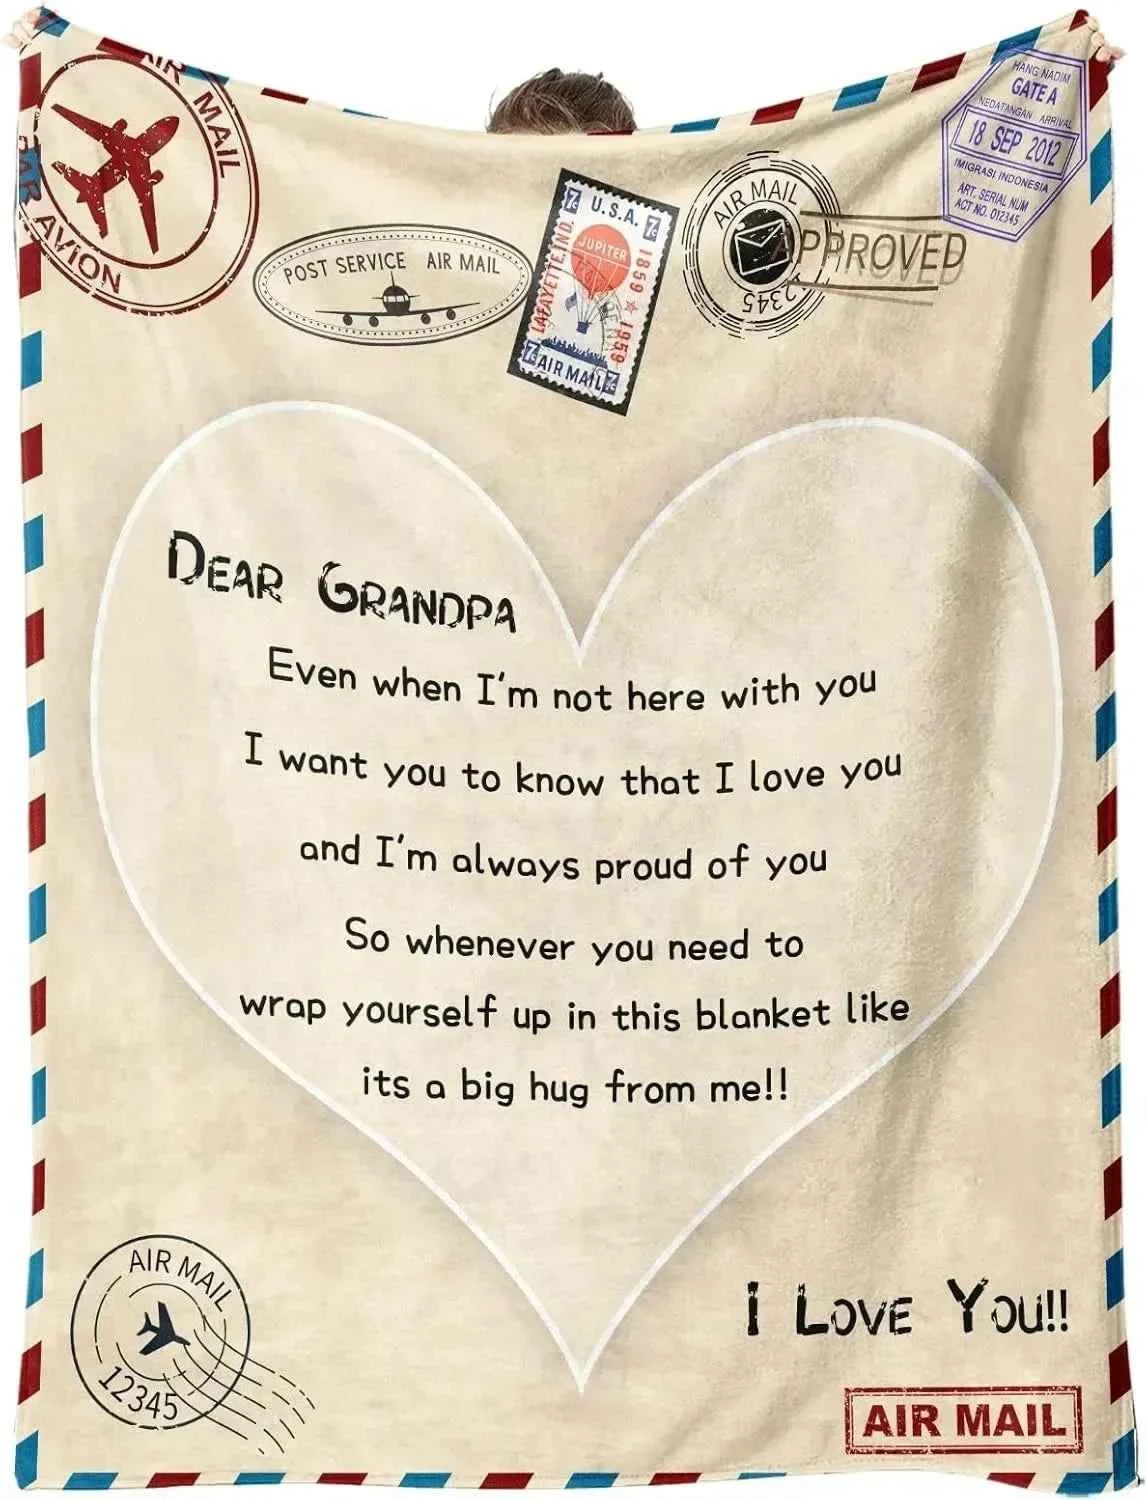 AIR MAIL
PAR AVION
POST SERVICE AIR MAIL
7c U.S.A. 7c
LAFAYETTE, IND.
JUPITER
1859 ★ 1959
7c AIR MAIL 7c
AIR MAIL
12345
APPROVED
HANG NADIM
GATE A
KEDATANGAN ARRIVAL
18 SEP 2012
IMIGRASI INDONESIA
ART. SERIAL NUM
ACT NO. 012345
DEAR GRANDPA
Even when I'm not here with you
I want you to know that I love you
and I'm always proud of you
So whenever you need to
wrap yourself up in this blanket like
its a big hug from me!!
I LOVE YOU!!
AIR MAIL
12345
AIR MAIL